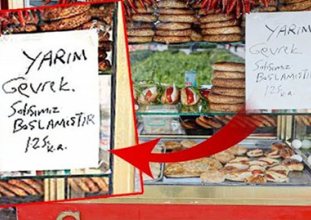 YARIM
GEVREK.
SATIŞIMIZ
BAŞLAMIŞTIR
125 k.a.
YARIM
GEVREK.
SATIŞIMIZ
BAŞLAMIŞTIR
125 k.a.